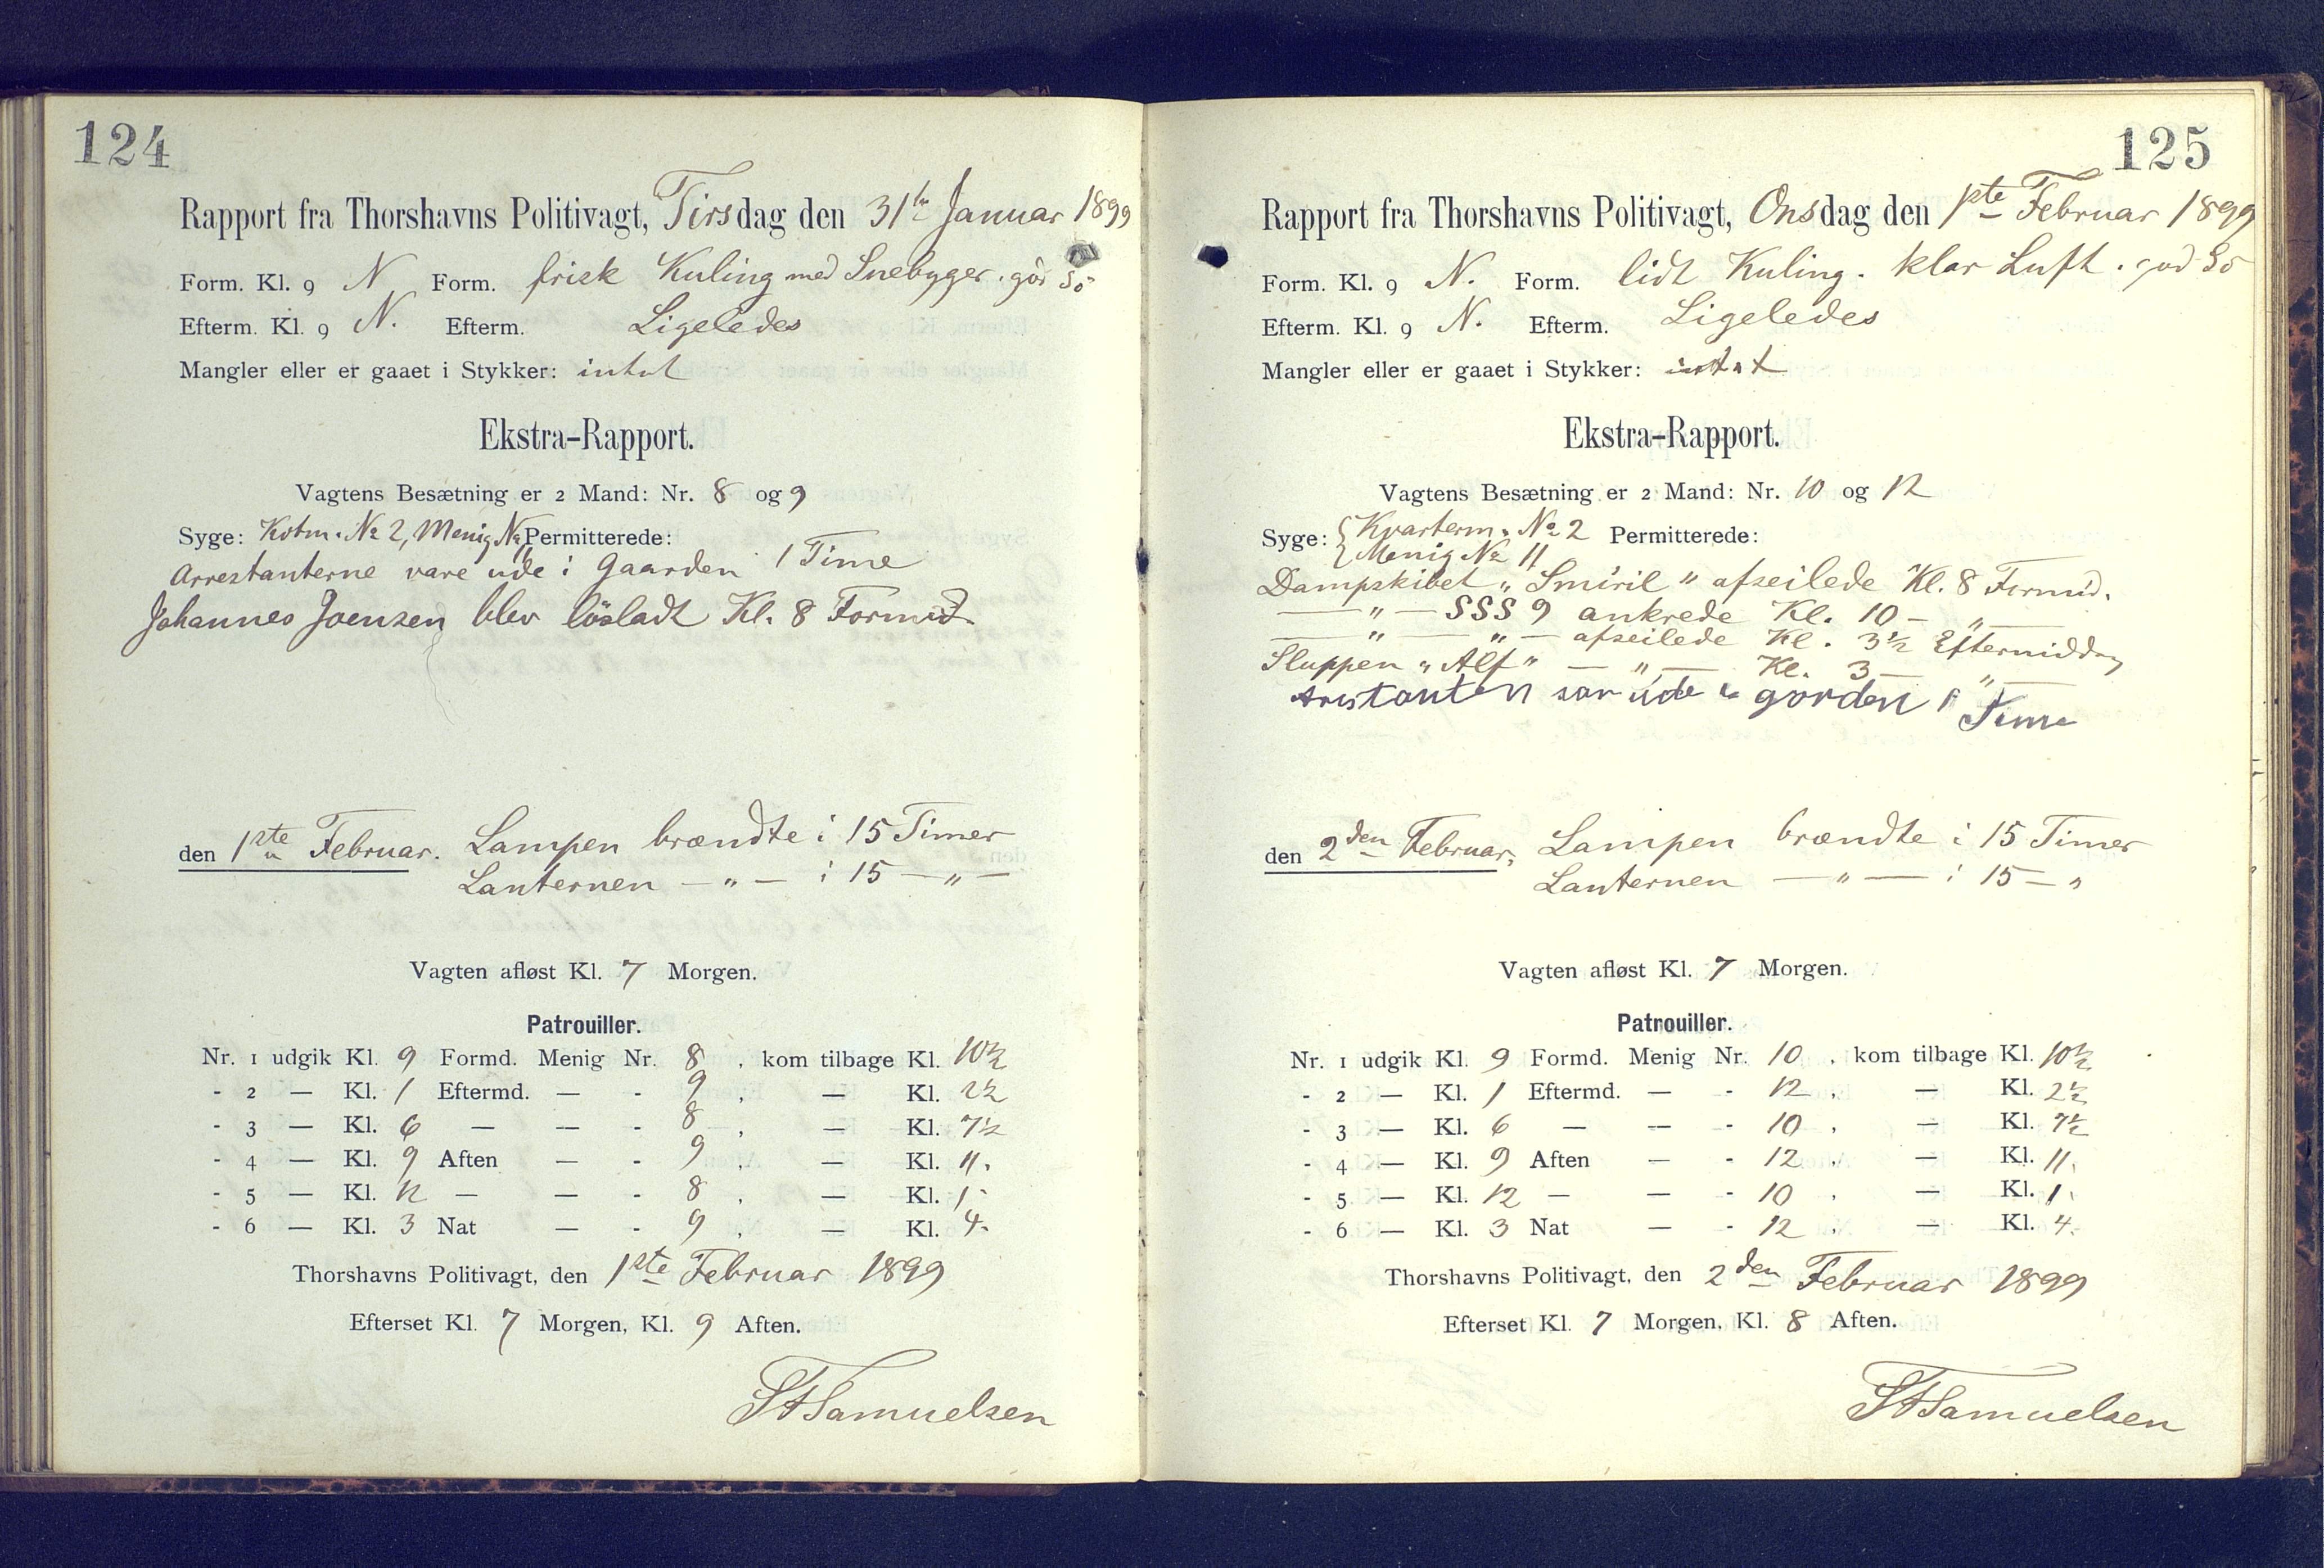 124
Rapport fra Thorshavns Politivagt, Tirsdag den 31te Januar 1899
Form. Kl. 9 N Form. frisk Kuling med Snebyger. går Sö
Efterm. Kl. 9 N. Efterm. Ligeledes
Mangler eller er gaaet i Stykker: intet
Ekstra-Rapport.
Vagtens Besætning er 2 Mand: Nr. 8 og 9
Syge: Kvtm. № 2, Menig № 11 Permitterede:
Arrestanterne vare ude i Gaarden 1 Time
Johannes Joensen blev lösladt Kl. 8 Formid.
den 1ste Februar. Lampen brændte i 15 Timer
Lanternen — „ — i 15 — „ —
Vagten afløst Kl. 7 Morgen.
Patrouiller.
Nr. 1 udgik Kl. 9 Formd. Menig Nr. 8, kom tilbage Kl. 10½
- 2 — Kl. 1 Eftermd. — - 9, — Kl. 2½
- 3 — Kl. 6 — — - 8, — Kl. 7½
- 4 — Kl. 9 Aften — - 9, — Kl. 11.
- 5 — Kl. 12 — — - 8, — Kl. 1-
- 6 — Kl. 3 Nat — - 9, — Kl. 4-
Thorshavns Politivagt, den 1ste Februar 1899
Efterset Kl. 7 Morgen, Kl. 9 Aften.
Samuelsen
125
Rapport fra Thorshavns Politivagt, Onsdag den 1ste Februar 1899
Form. Kl. 9 N. Form. lidt Kuling. klar Luft. god Sö
Efterm. Kl. 9 N. Efterm. Ligeledes
Mangler eller er gaaet i Stykker: intet
Ekstra-Rapport.
Vagtens Besætning er 2 Mand: Nr. 10 og 12
Syge: { Kvarterm. № 2 Permitterede:
Menig № 11
Dampskibet „Smiril" afseilede Kl. 8 Formid.
— „ — SSS 9 ankrede Kl. 10 — „ —
— „ — „ — afseilede Kl. 3½ Eftermiddag
Sluppen „Alf" — „ — Kl. 3 — „ —
Aristanten var ude i gorden 1 Time
den 2den Februar, Lampen brændte i 15 Timer
Lanternen — „ — i 15 — „
Vagten afløst Kl. 7 Morgen.
Patrouiller.
Nr. 1 udgik Kl. 9 Formd. Menig Nr. 10, kom tilbage Kl. 10½
- 2 — Kl. 1 Eftermd. — - 12, — Kl. 2½
- 3 — Kl. 6 — — - 10, — Kl. 7½
- 4 — Kl. 9 Aften — - 12, — Kl. 11.
- 5 — Kl. 12 — — - 10, — Kl. 1.
- 6 — Kl. 3 Nat — - 12, — Kl. 4.
Thorshavns Politivagt, den 2den Februar 1899
Efterset Kl. 7 Morgen, Kl. 8 Aften.
Samuelsen